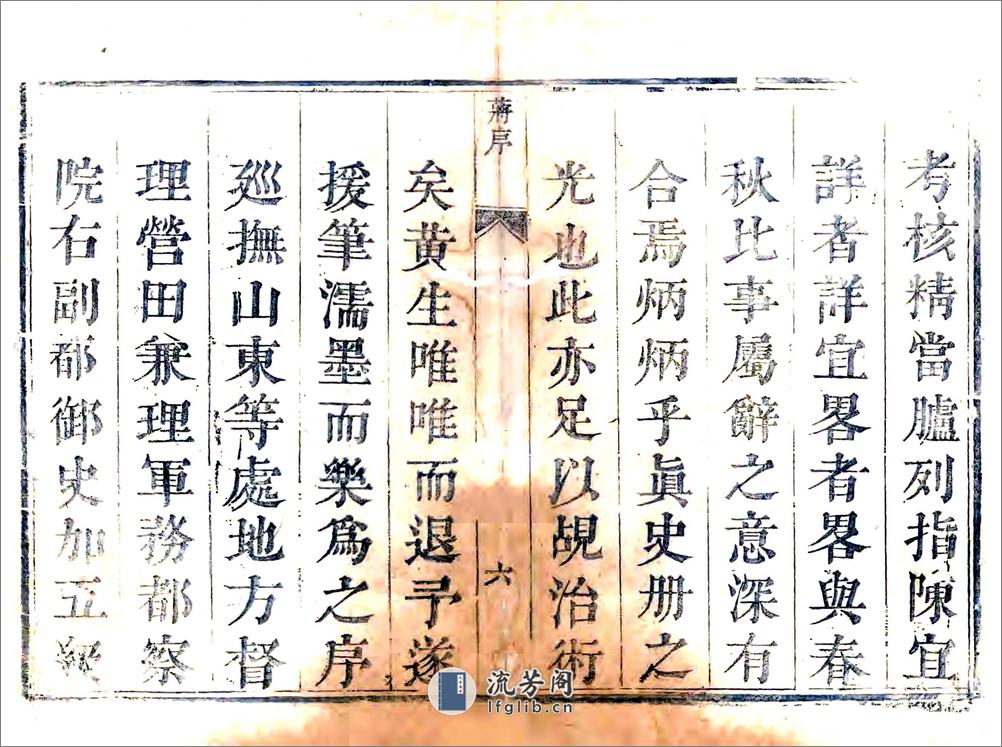 考核精當臚列指陳宜
詳者詳宜畧者畧與春
秋比事屬辭之意深有
合焉炳炳乎眞史册之
光也此亦足以覘治術
蔣序
六
矣黃生唯唯而退予遂
援筆濡墨而樂爲之序
廵撫山東等處地方督
理營田兼理軍務都察
院右副都御史加五級
流芳阁
lfglib.cn